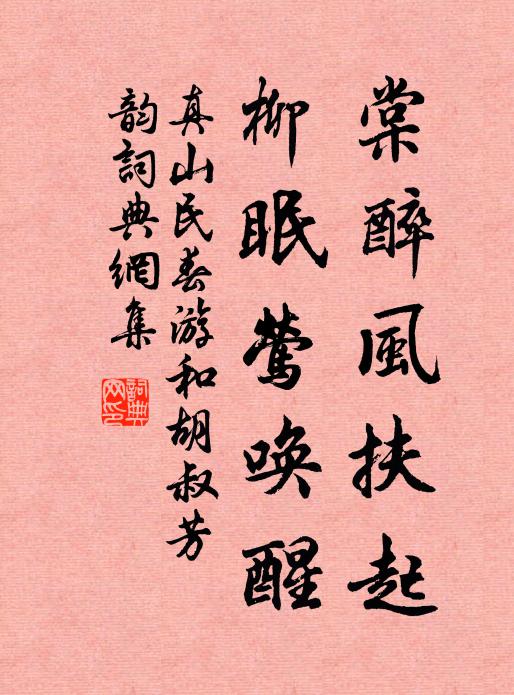 棠醉風扶起
柳眠鶯唤醒
真山民春游和胡叔芳
韵詞典網集
詞典网印